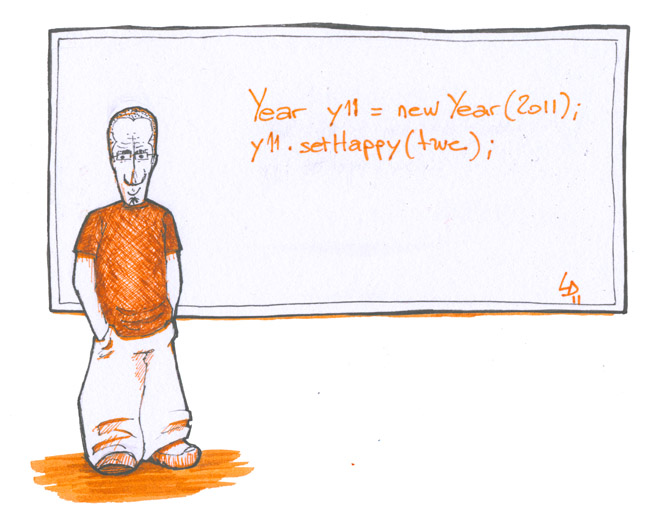 Year y11 = new Year(2011);
y11.setHappy(true);
LD
11